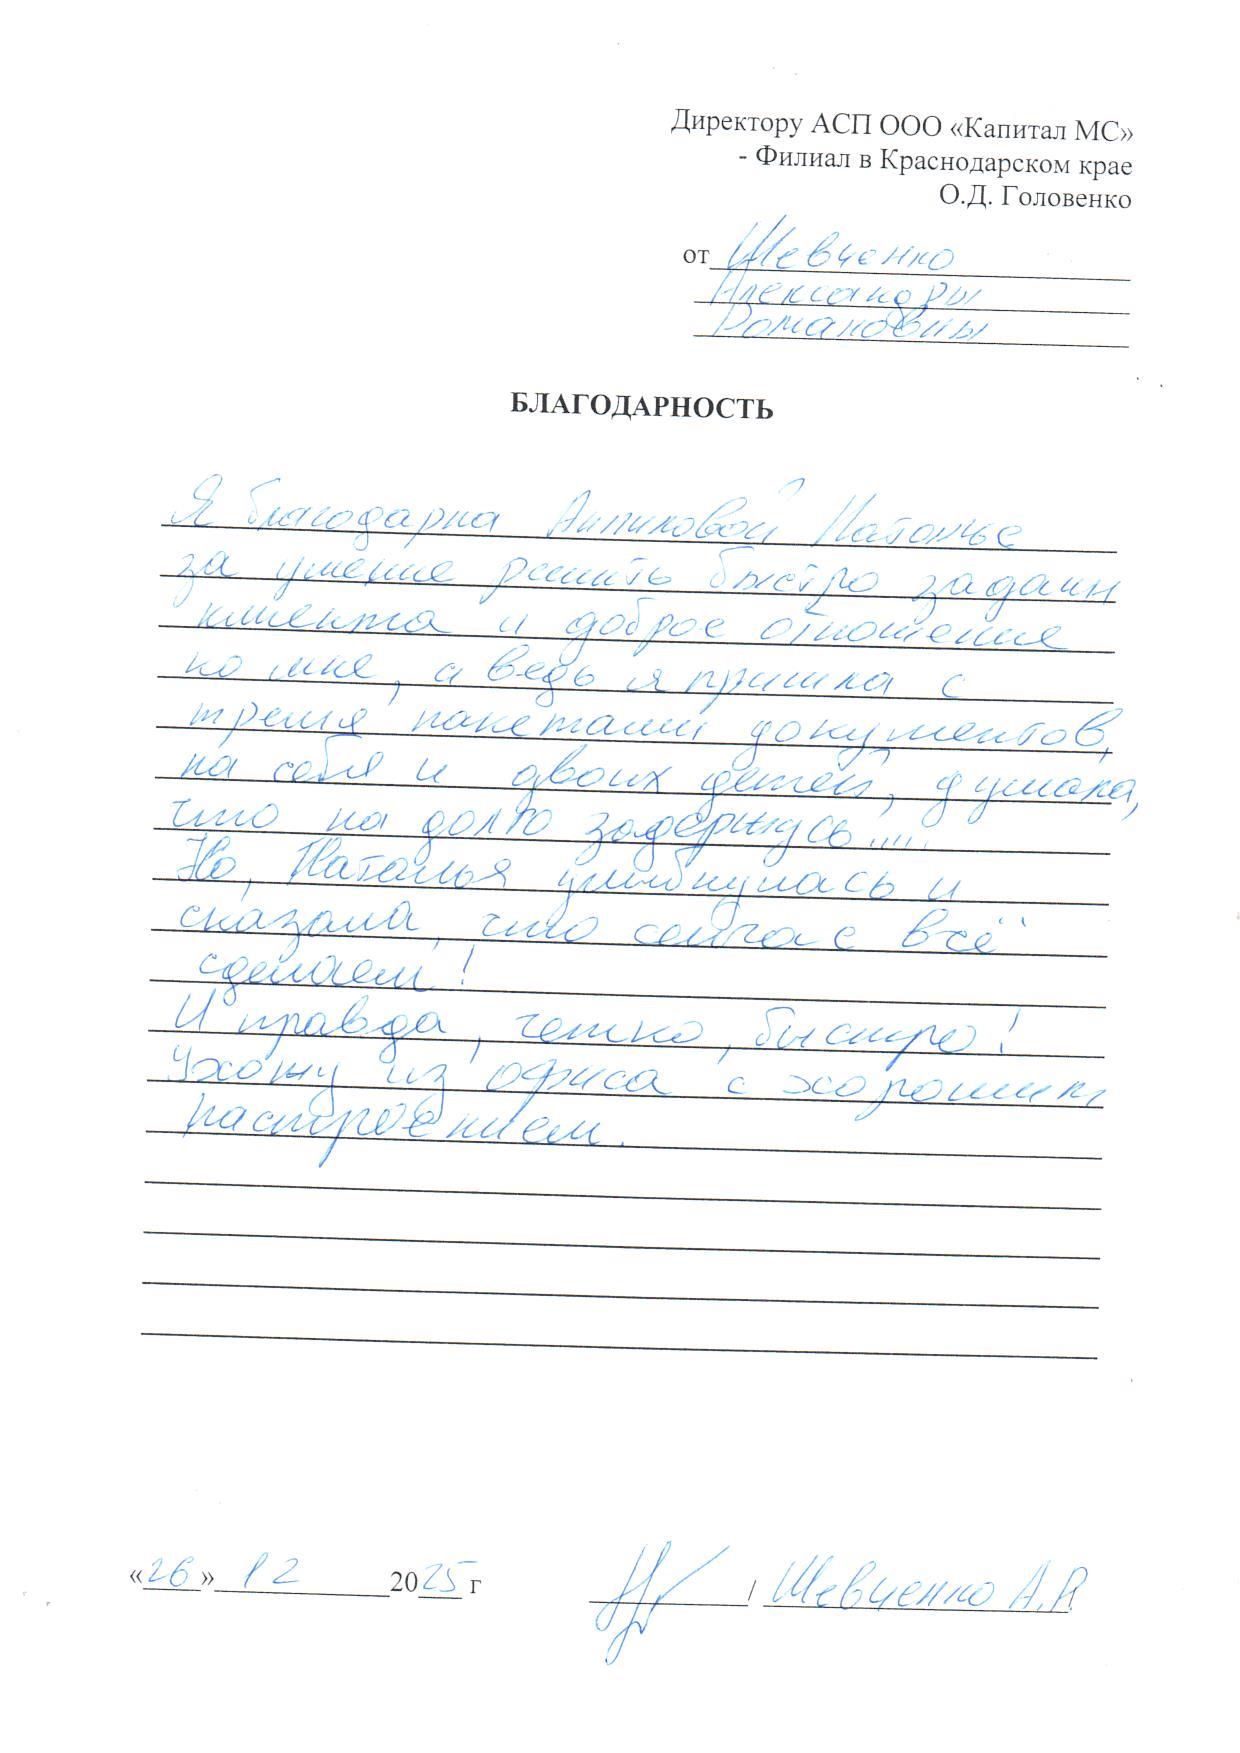 Директору АСП ООО «Капитал МС»
- Филиал в Краснодарском крае
О.Д. Головенко
от Шевченко
Александры
Романовны
БЛАГОДАРНОСТЬ
Я благодарна Наталье
за умение решить быстро задачи
клиента и доброе отношение
ко мне, а ведь я пришла с
тремя пакетами документов,
на себя и двоих детей, думала,
что на долго задержусь.....
Но, Наталья улыбнулась и
сказала, что сейчас всё
сделаем!
И правда, четко, быстро!
Ухожу из офиса с хорошим
настроением.
«26» 12 2025 г / Шевченко А.Р.